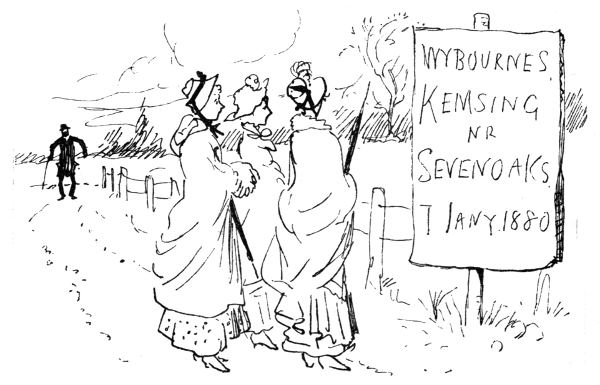 WYBOURNES,
KEMSING
NR
SEVENOAKS,
7 JANY. 1880